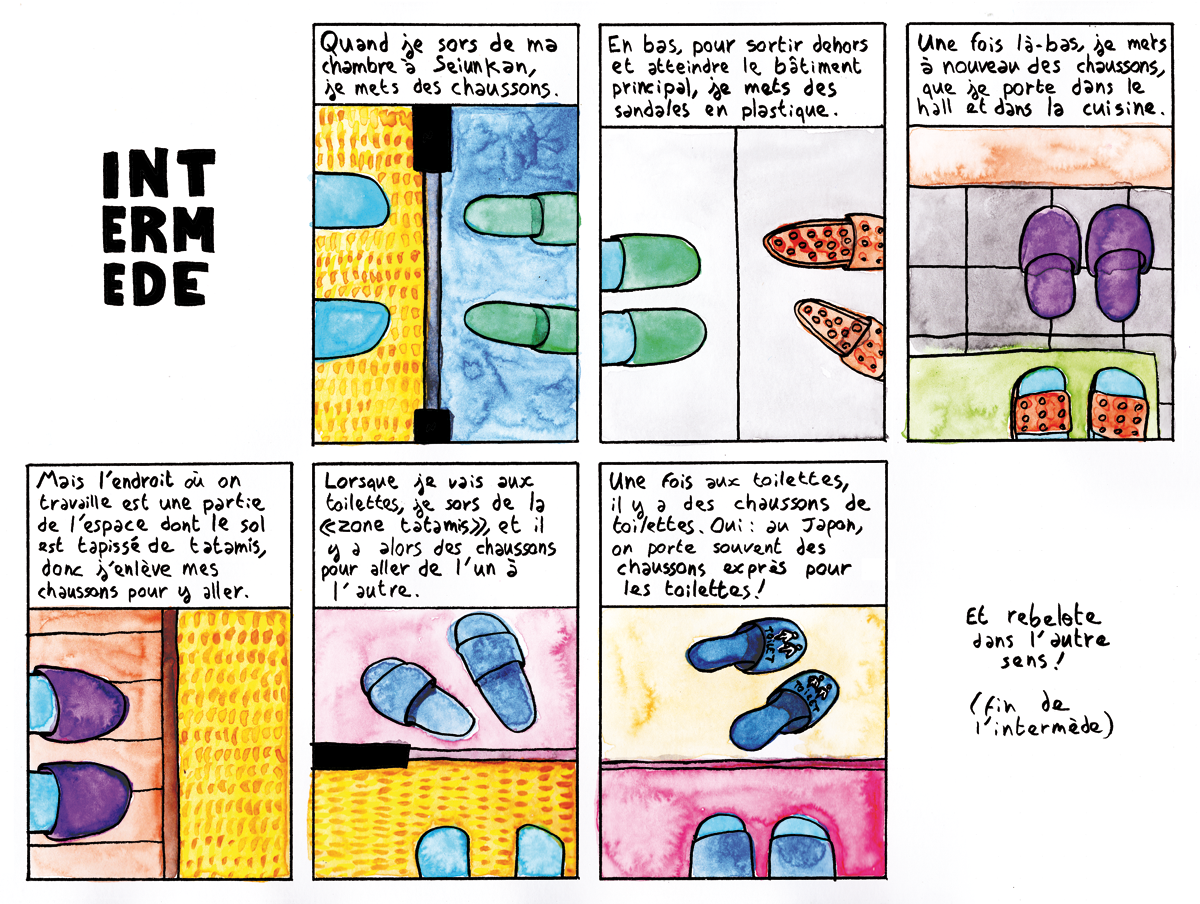 INT
ERM
EDE
Quand je sors de ma
chambre à Seiunkan,
je mets des chaussons.
En bas, pour sortir dehors
et atteindre le bâtiment
principal, je mets des
sandales en plastique.
Une fois là-bas, je mets
à nouveau des chaussons,
que je porte dans le
hall et dans la cuisine.
Mais l'endroit où on
travaille est une partie
de l'espace dont le sol
est tapissé de tatamis,
donc j'enlève mes
chaussons pour y aller.
Lorsque je vais aux
toilettes, je sors de la
«zone tatamis», et il
y a alors des chaussons
pour aller de l'un à
l'autre.
Une fois aux toilettes,
il y a des chaussons de
toilettes. Oui : au Japon,
on porte souvent des
chaussons exprès pour
les toilettes!
TOILET
TOILET
Et rebelote
dans l'autre
sens!
(fin de
l'intermède)